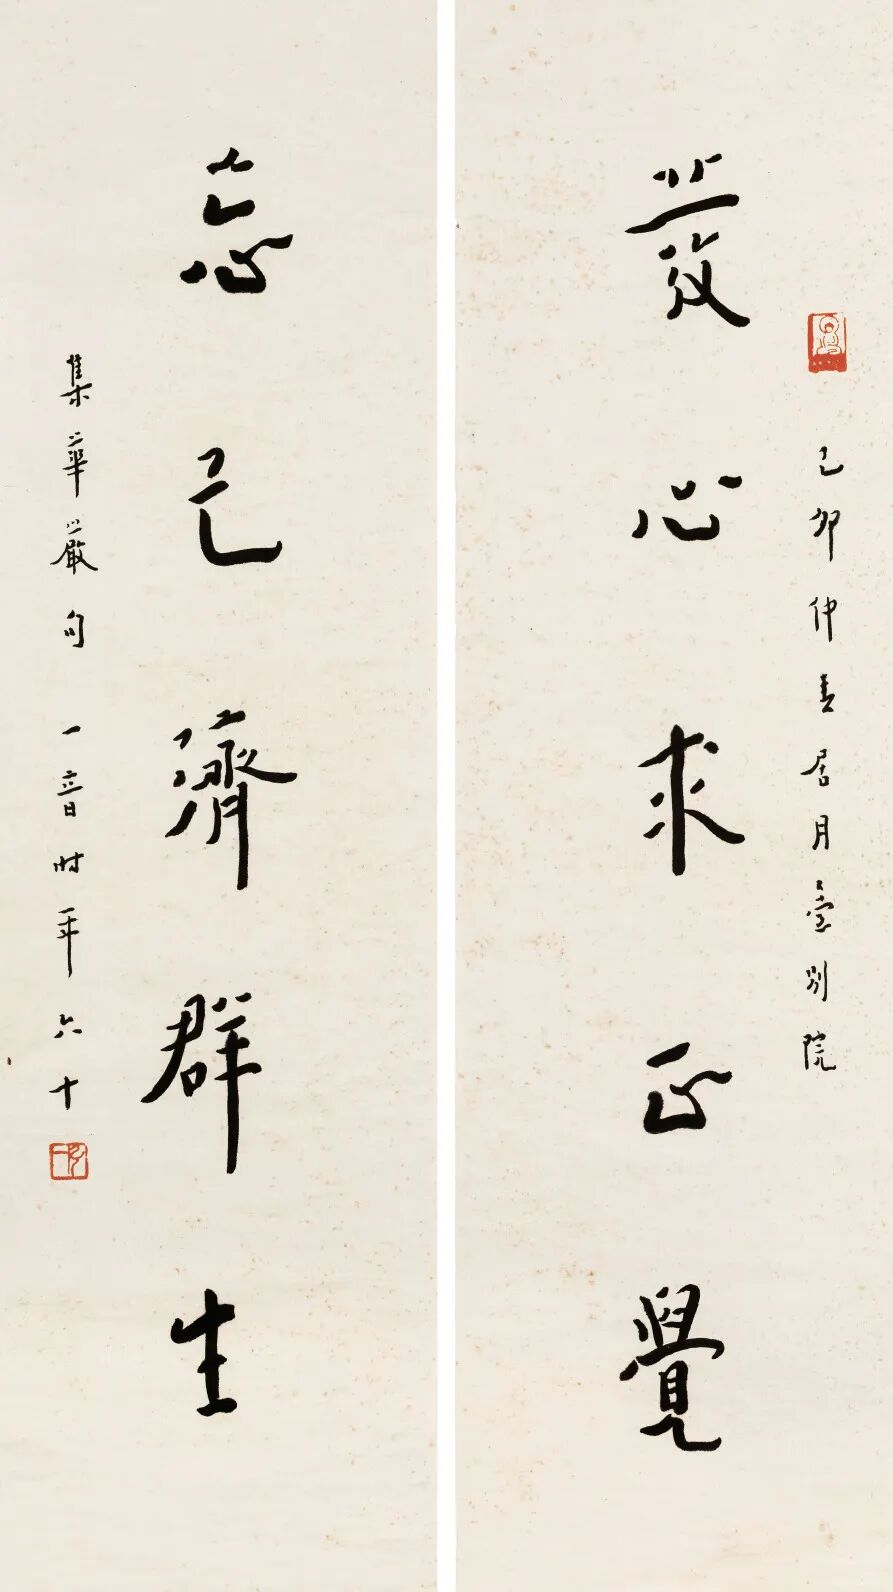 己卯仲春居月臺別院
發心求正覺
忘己濟群生
集華嚴句 一音时年六十
弘一